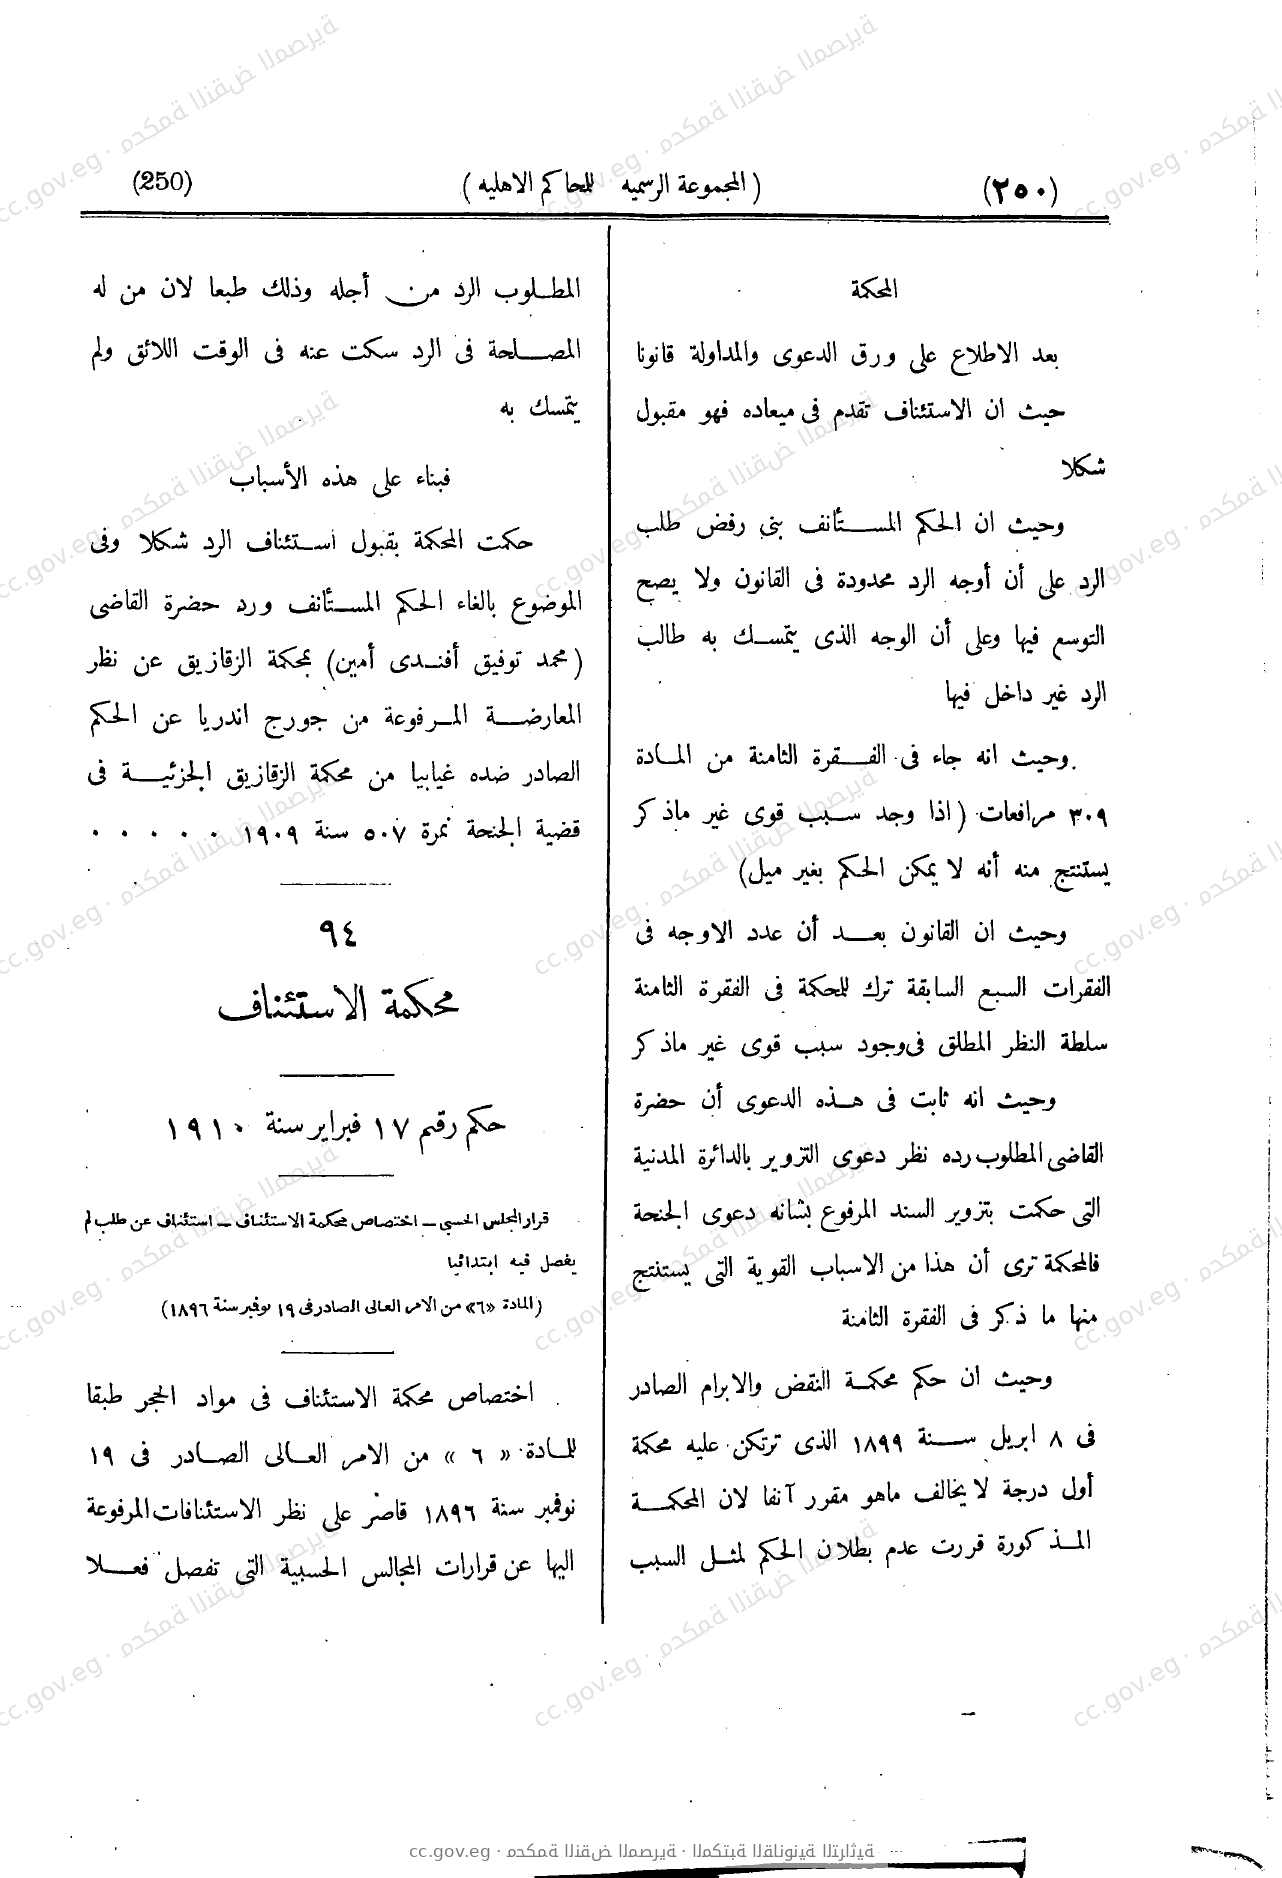 (٢٥٠)
( المجموعة الرسميه للمحاكم الاهليه )
(250)
المحكمة
بعد الاطلاع على ورق الدعوى والمداولة قانونا
حيث ان الاستئناف تقدم فى ميعاده فهو مقبول
شكلا
وحيث ان الحكم المستأنف بنى رفض طلب
الرد على أن أوجه الرد محدودة فى القانون ولا يصح
التوسع فيها وعلى أن الوجه الذى يتمسك به طالب
الرد غير داخل فيها
وحيث انه جاء فى الفقرة الثامنة من المادة
٣٠٩ مرافعات (اذا وجد سبب قوى غير ماذكر
يستنتج منه أنه لا يمكن الحكم بغير ميل)
وحيث ان القانون بعد أن عدد الاوجه فى
الفقرات السبع السابقة ترك للمحكمة فى الفقرة الثامنة
سلطة النظر المطلق فى وجود سبب قوى غير ماذكر
وحيث انه ثابت فى هذه الدعوى أن حضرة
القاضى المطلوب رده نظر دعوى التزوير بالدائرة المدنية
التى حكمت بتزوير السند المرفوع بشانه دعوى الجنحة
فالمحكمة ترى أن هذا من الاسباب القوية التى يستنتج
منها ما ذكر فى الفقرة الثامنة
وحيث ان حكم محكمة النقض والابرام الصادر
فى ٨ ابريل سنة ١٨٩٩ الذى ترتكن عليه محكمة
أول درجة لا يخالف ماهو مقرر آنفا لان المحكمة
المذكورة قررت عدم بطلان الحكم لمثل السبب
المطلوب الرد من أجله وذلك طبعا لان من له
المصلحة فى الرد سكت عنه فى الوقت اللائق ولم
يتمسك به
فبناء على هذه الأسباب
حكمت المحكمة بقبول استئناف الرد شكلا وفى
الموضوع بالغاء الحكم المستأنف ورد حضرة القاضى
(محمد توفيق أفندى أمين) بمحكمة الزقازيق عن نظر
المعارضة المرفوعة من جورج اندريا عن الحكم
الصادر ضده غيابيا من محكمة الزقازيق الجزئية فى
قضية الجنحة نمرة ٥٠٧ سنة ١٩٠٩ . . . . .
٩٤
محكمة الاستئناف
حكم رقم ١٧ فبراير سنة ١٩١٠
قرار المجلس الحسبى – اختصاص محكمة الاستئناف – استئناف عن طلب لم
يفصل فيه ابتدائيا
(المادة «٦» من الامر العالى الصادر فى ١٩ نوفمبر سنة ١٨٩٦)
اختصاص محكمة الاستئناف فى مواد الحجر طبقا
للمادة « ٦ » من الامر العالى الصادر فى ١٩
نوفمبر سنة ١٨٩٦ قاصر على نظر الاستئنافات المرفوعة
اليها عن قرارات المجالس الحسبية التى تفصل فعلا
cc.gov.eg · محكمة النقض المصرية · المكتبة القانونية التراثية